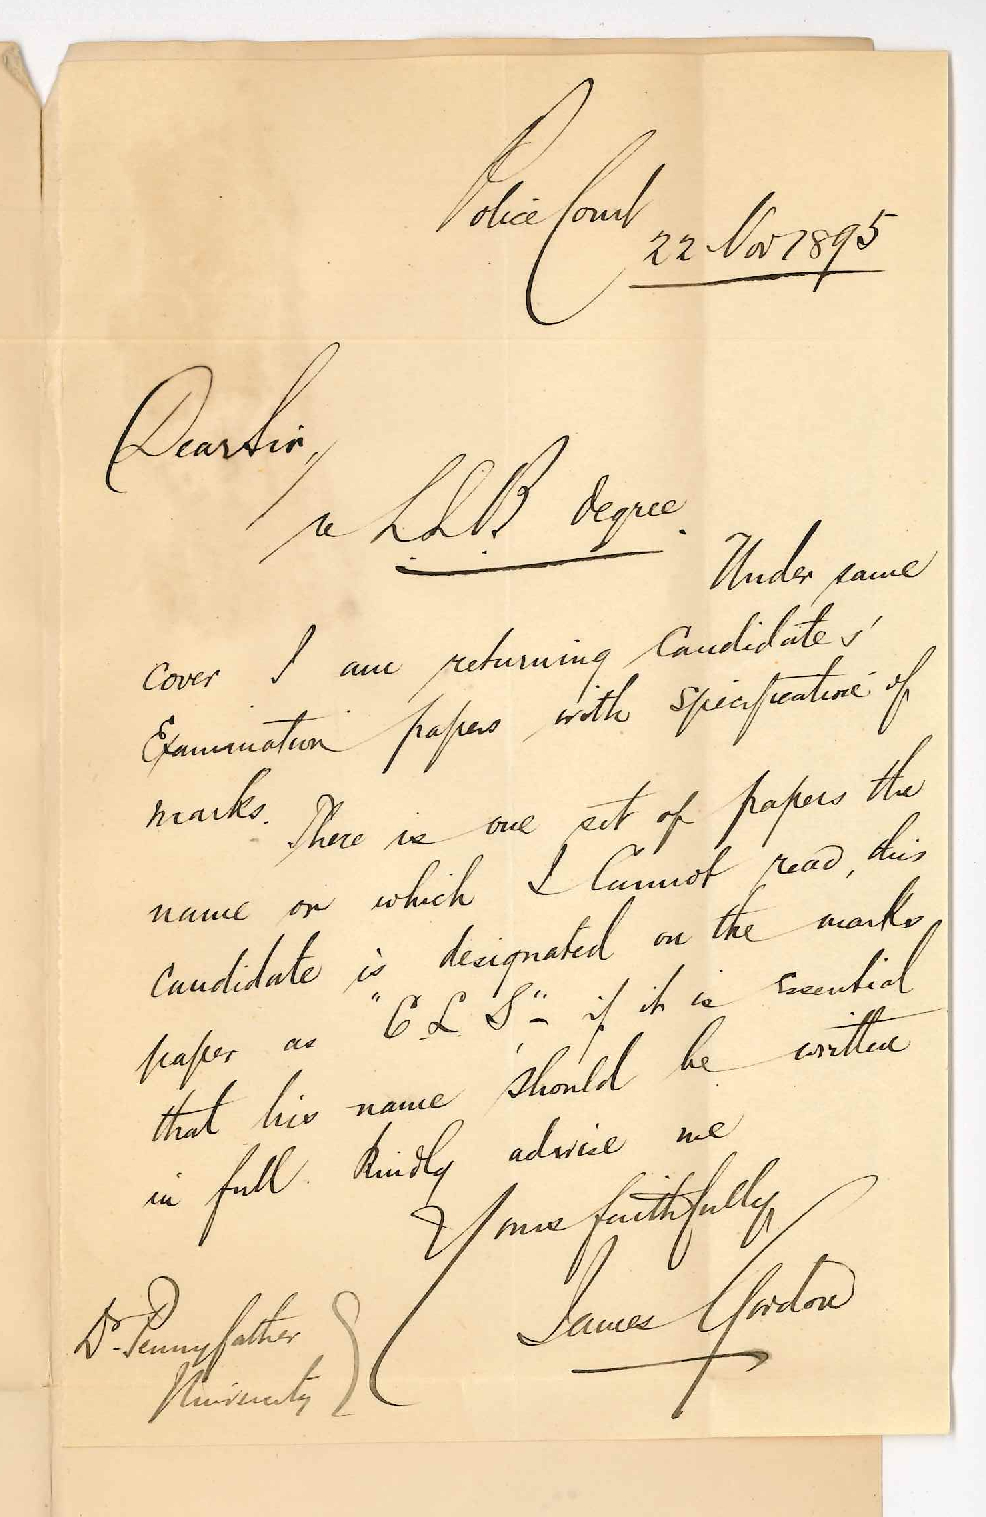 Police Court
22 Nov 1895
Dear Sir,
re LLB degree.
Under same
cover I am returning Candidates'
Examination papers with specification of
marks.
There is one set of papers the
name on which I Cannot read, this
candidate is designated on the marks
paper as "C L S" - if it is essential
that his name should be written
in full. Kindly advise me
Yours faithfully,
James Gordon
Dr. Pennyfather
University